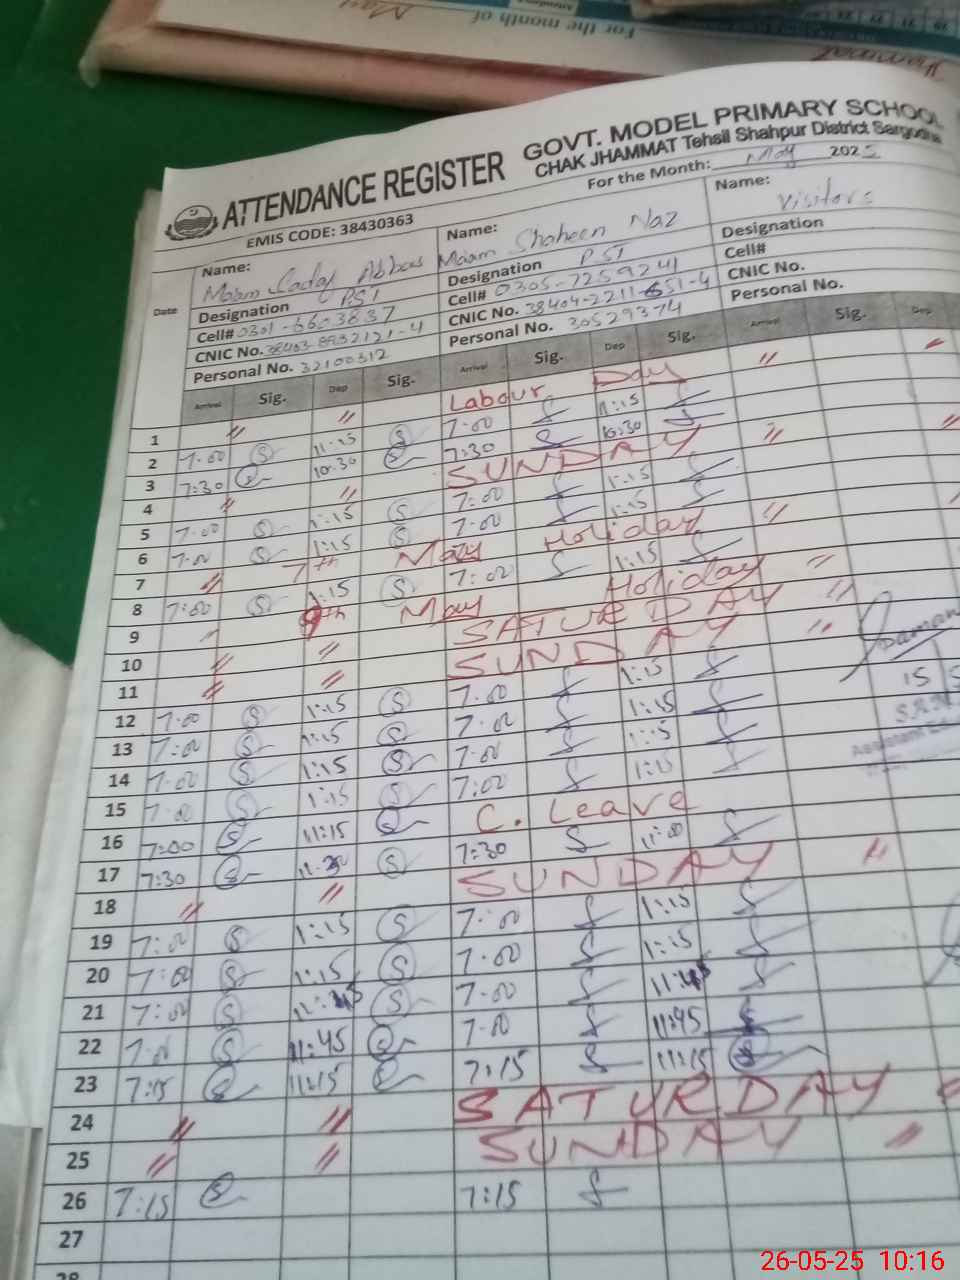 For the month of
ATTENDANCE REGISTER
GOVT. MODEL PRIMARY SCHOOL
CHAK JHAMMAT Tehsil Shahpur District Sargodha
EMIS CODE: 38430363
For the Month: May 2025
Date
Name: Maam Sadaf Abbas
Designation PST
Cell# 0301-6603837
CNIC No.
Personal No. 32100312
Name: Maam Shaheen Naz
Designation PST
Cell# 0305-7259241
CNIC No.
Personal No. 30529374
Name: Visitors
Designation
Cell#
CNIC No.
Personal No.
Arrival Sig. Dep Sig. Arrival Sig. Dep Sig. Arrival Sig. Dep
1 〃 〃 Labour Day 〃
2 7:00 11:15 7:00 11:15
3 7:30 10:30 7:30 10:30
4 〃 〃 SUNDAY 〃 〃
5 7:00 1:15 7:00 1:15
6 7:00 1:15 7:00 1:15
7 〃 7th May Holiday 〃
8 7:00 1:15 7:00 1:15
9 9th May Holiday 〃
10 〃 〃 SATURDAY 〃
11 〃 〃 SUNDAY 〃
12 7:00 1:15 7:00 1:15
13 7:00 1:15 7:00 1:15
14 7:00 1:15 7:00 1:15
15 7:00 1:15 7:00 1:15
16 7:00 11:15 C. Leave
17 7:30 7:30 11:00
18 〃 〃 SUNDAY 〃
19 7:00 1:15 7:00 1:15
20 7:00 1:15 7:00 1:15
21 7:00 11:45 7:00 11:45
22 7:00 11:45 7:00 11:45
23 7:15 11:15 7:15 11:15
24 〃 〃 SATURDAY
25 〃 〃 SUNDAY 〃
26 7:15 7:15
27
28
26-05-25 10:16